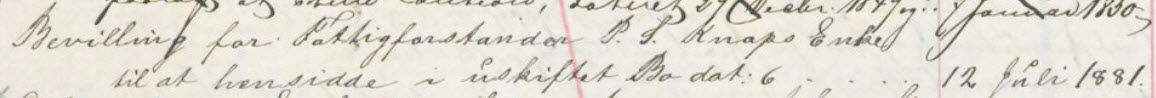 at stille Caution, dateret 29 Decbr. 1849 7 Januar 1850
Bevilling for Fattigforstander P. S. Knaps Enke
til at hensidde i uskiftet Bo dat: 6 . . . . 12 Juli 1881.